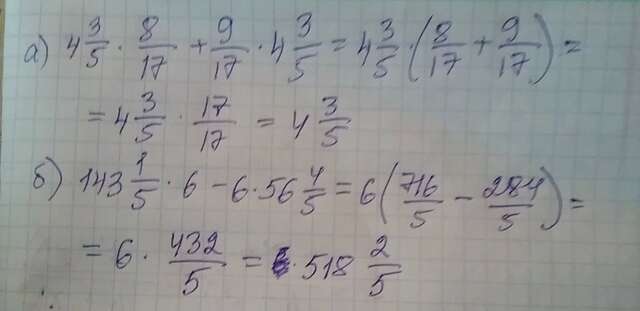 а) 4 3/5 · 8/17 + 9/17 · 4 3/5 = 4 3/5 · (8/17 + 9/17) =
= 4 3/5 · 17/17 = 4 3/5
б) 143 1/5 · 6 − 6 · 56 4/5 = 6 (716/5 − 284/5) =
= 6 · 432/5 = 518 2/5